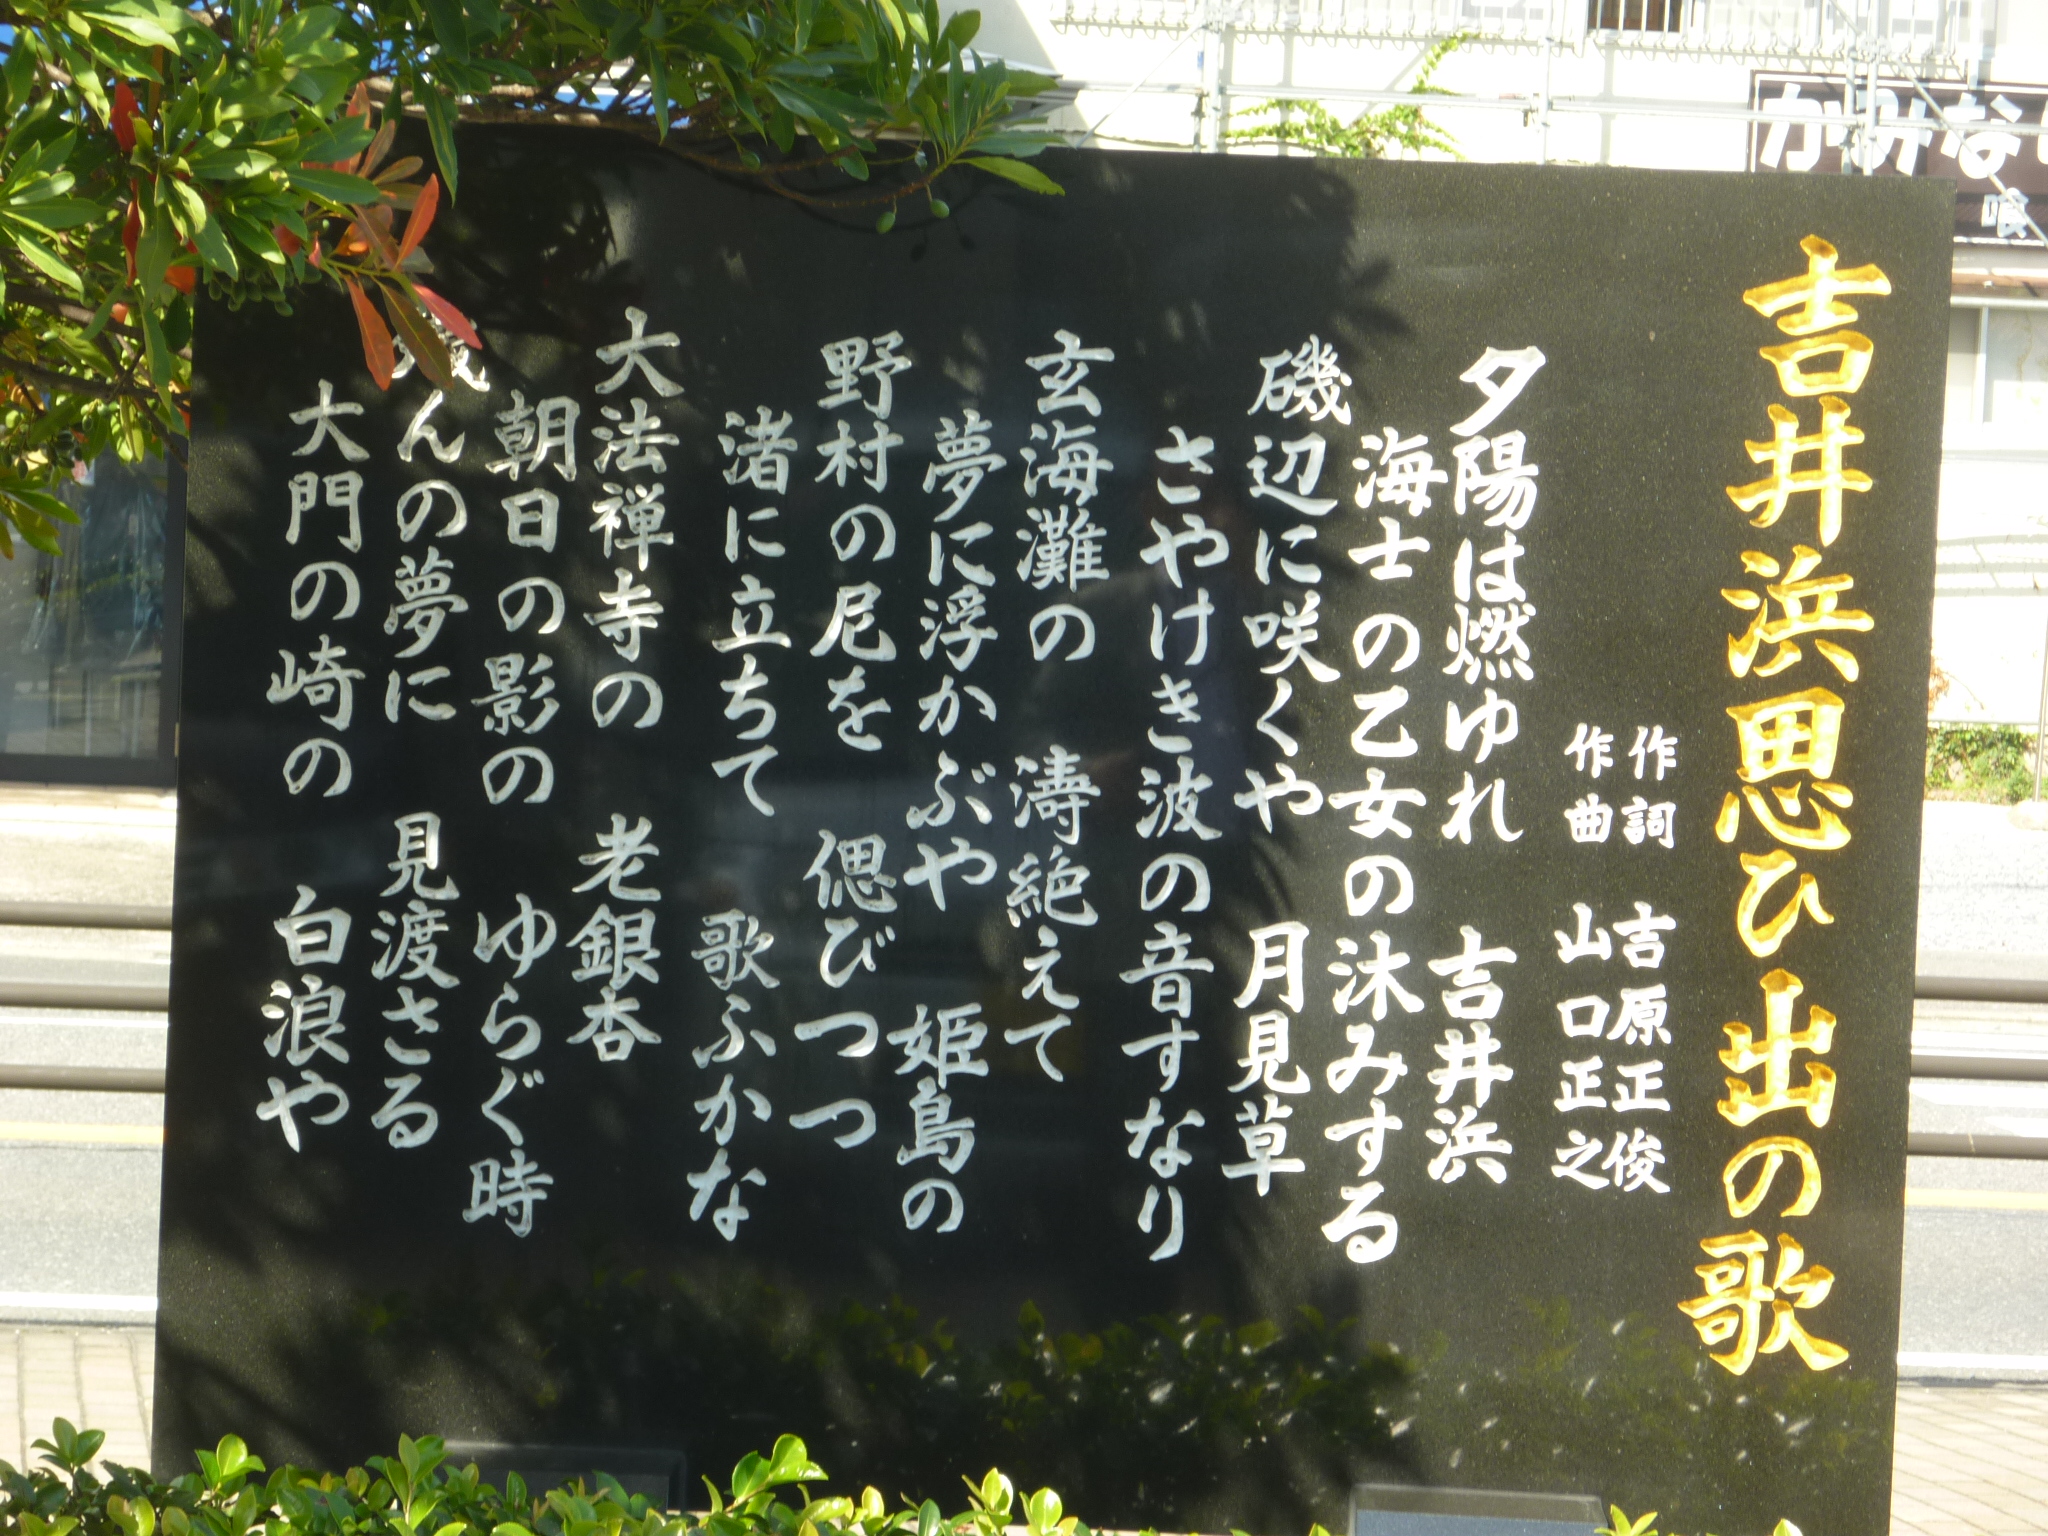 吉井浜思ひ出の歌
作詞 吉原正俊
作曲 山口正之
夕陽は燃ゆれ 吉井浜
海士の乙女の沐みする
磯辺に咲くや 月見草
さやけき波の音すなり
玄海灘の 濤絶えて
夢に浮かぶや 姫島の
野村の尼を 偲びつつ
渚に立ちて 歌ふかな
大法禅寺の 老銀杏
朝日の影の ゆらぐ時
んの夢に 見渡さる
大門の崎の 白浪や